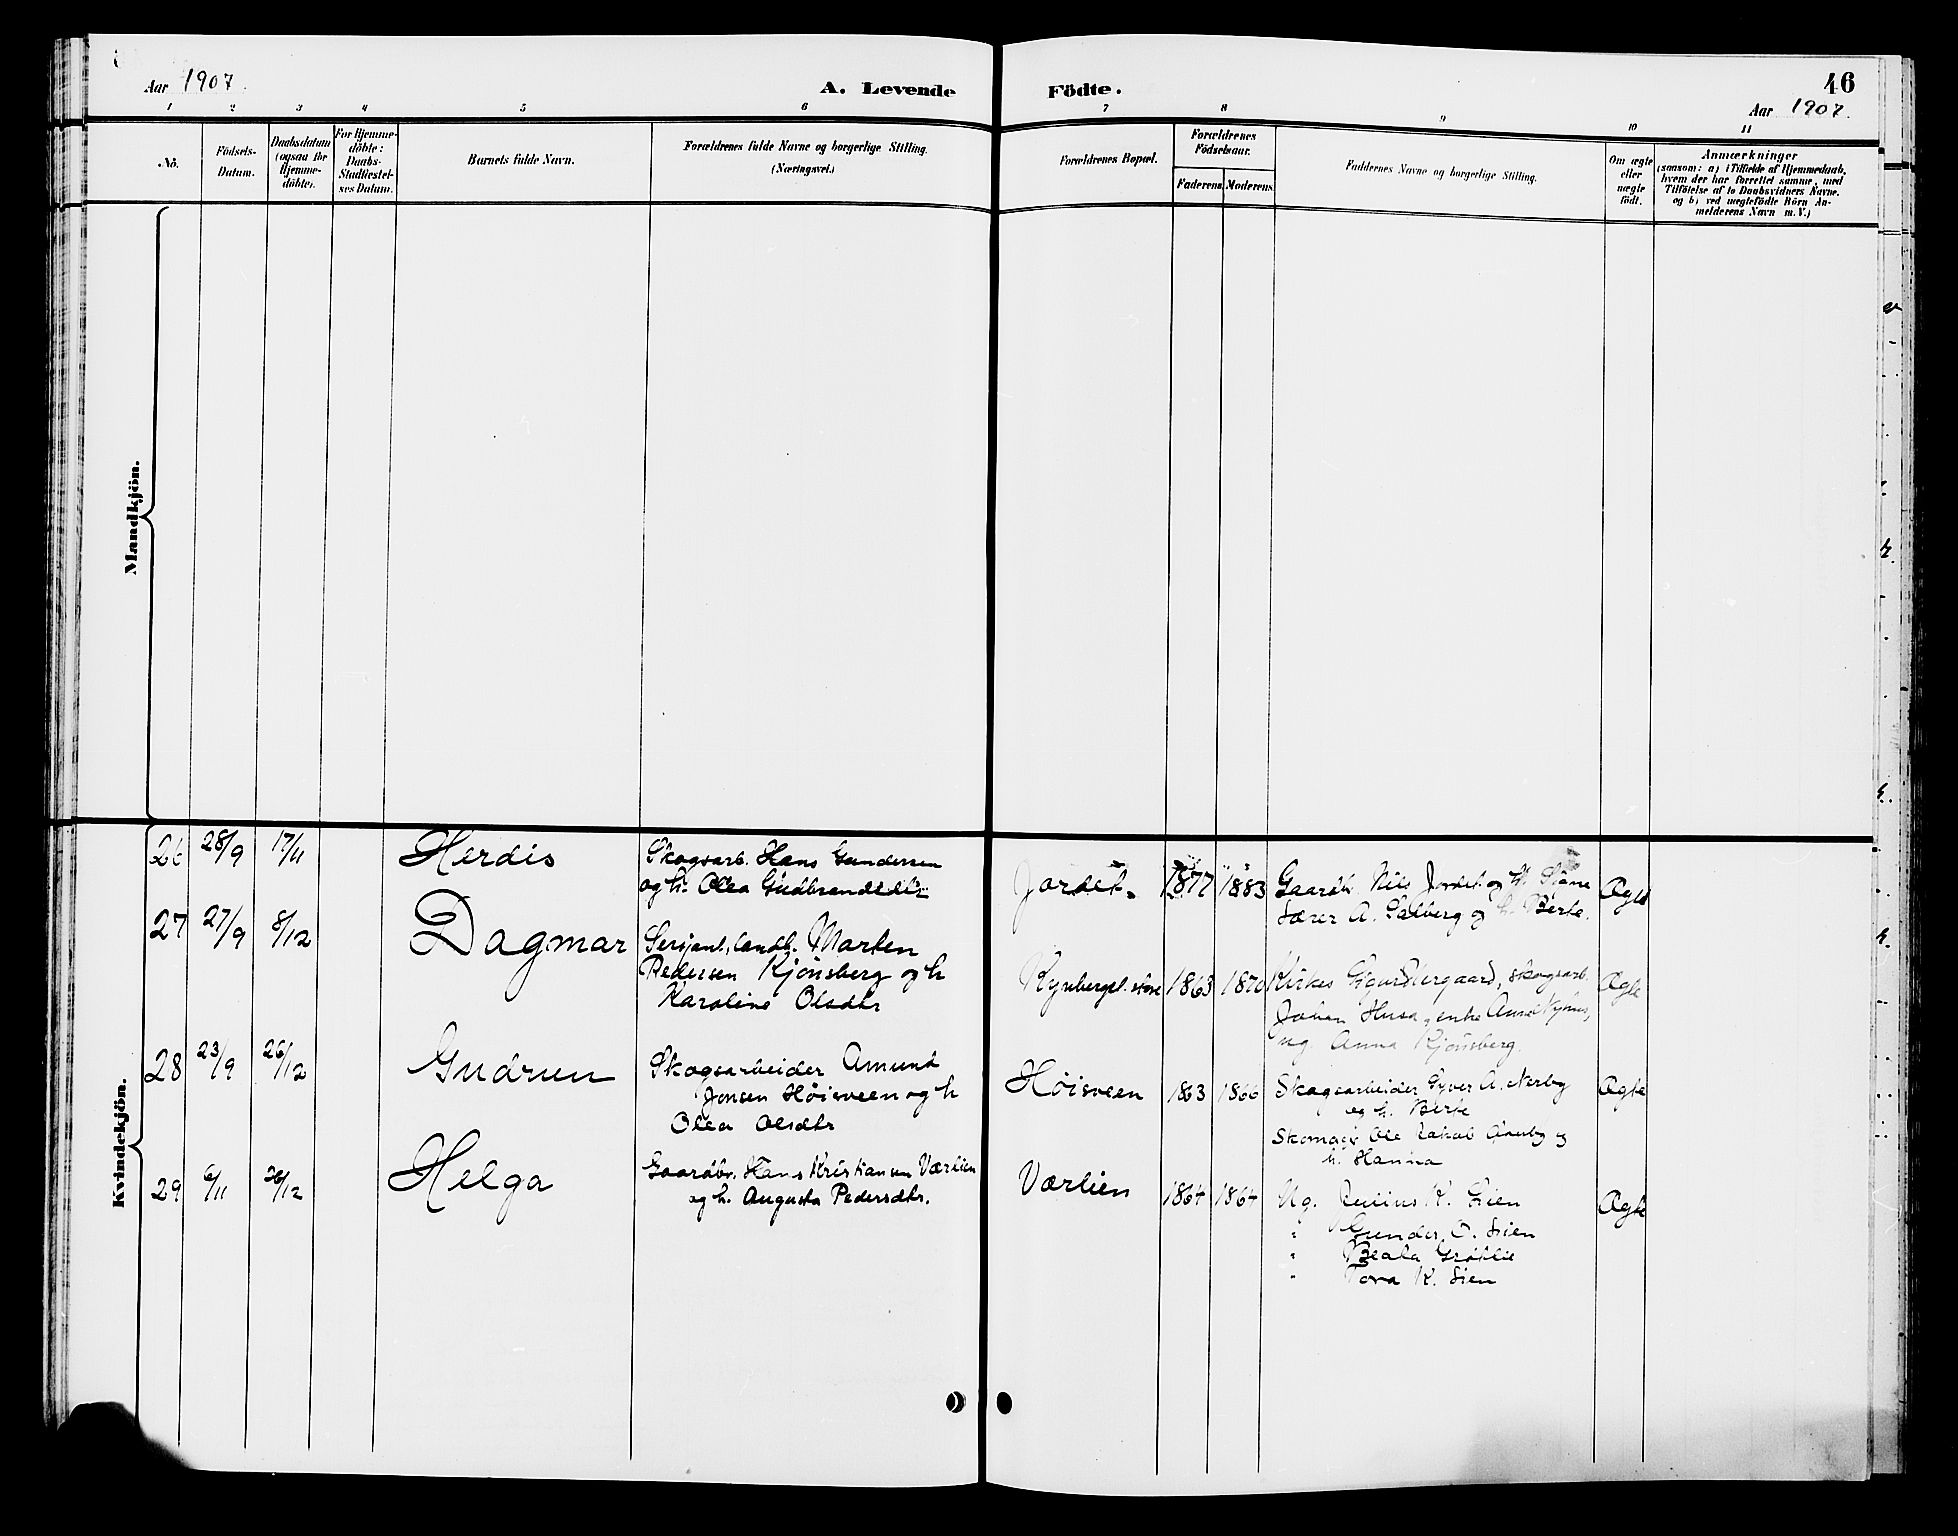 Aar 1907.
A. Levende
Födte.
46
Aar 1907.
1 2 3 4 5 6 7 8 9 10 11
No.
Födsels-
Datum.
Daabsdatum
(ogsaa for
Hjemme-
döbte).
For Hjemme-
döbte:
Daabs-
Stadfæstel-
ses Datum.
Barnets fulde Navn.
Forældrenes fulde Navne og borgerlige Stilling.
(Næringsvei.)
Forældrenes Bopæl.
Forældrenes
Födselsaar.
Faderens Moderens
Faddernes Navne og borgerlige Stilling.
Om ægte
eller
uægte
födt.
Anmærkninger
(saasom: a) i Tilfælde af Hjemmedaab,
hvem der har forrettet samme, med
Tilföielse af to Daabsvidners Navne.
og b) ved uægtefödte Börn An-
melderens Navn m. V.)
Mandkjön.
Kvindekjön.
26 28/9 17/11 Herdis
Skogsarb. Hans Gundersen
og h. Olea Gudbrandsdtr
Jordet. 1877 1883
Gaardbr. Nils Jordet og h.
Lærer A. Galberg og h. Berte.
Ægte
27 27/9 8/12 Dagmar
Serjant, landh. Marten
Pedersen Kjønsberg og h
Karoline Olsdtr
1863 1870
Kirkes. skogsarb.
Johan Husa, enke
ug. Anna Kjønsberg.
Ægte
28 23/9 26/12 Gudrun
Skogsarbeider Amund
Jonsen Høisveen og h
Olea Olsdtr
Høisveen 1863 1866
Skogsarbeider Syver A. Nerby
og h. Berte
Skomager Ole Jakob og
h. Hanna
Ægte
29 6/11 26/12 Helga
Gaardbr. Hans Kristiansen Værlien
og h. Augusta Pedersdtr.
Værlien 1864 1864
Ug. Julius K. Lien
" Gunder O. Lien
" Beata Grøtlie
" Tora K. Lien
Ægte